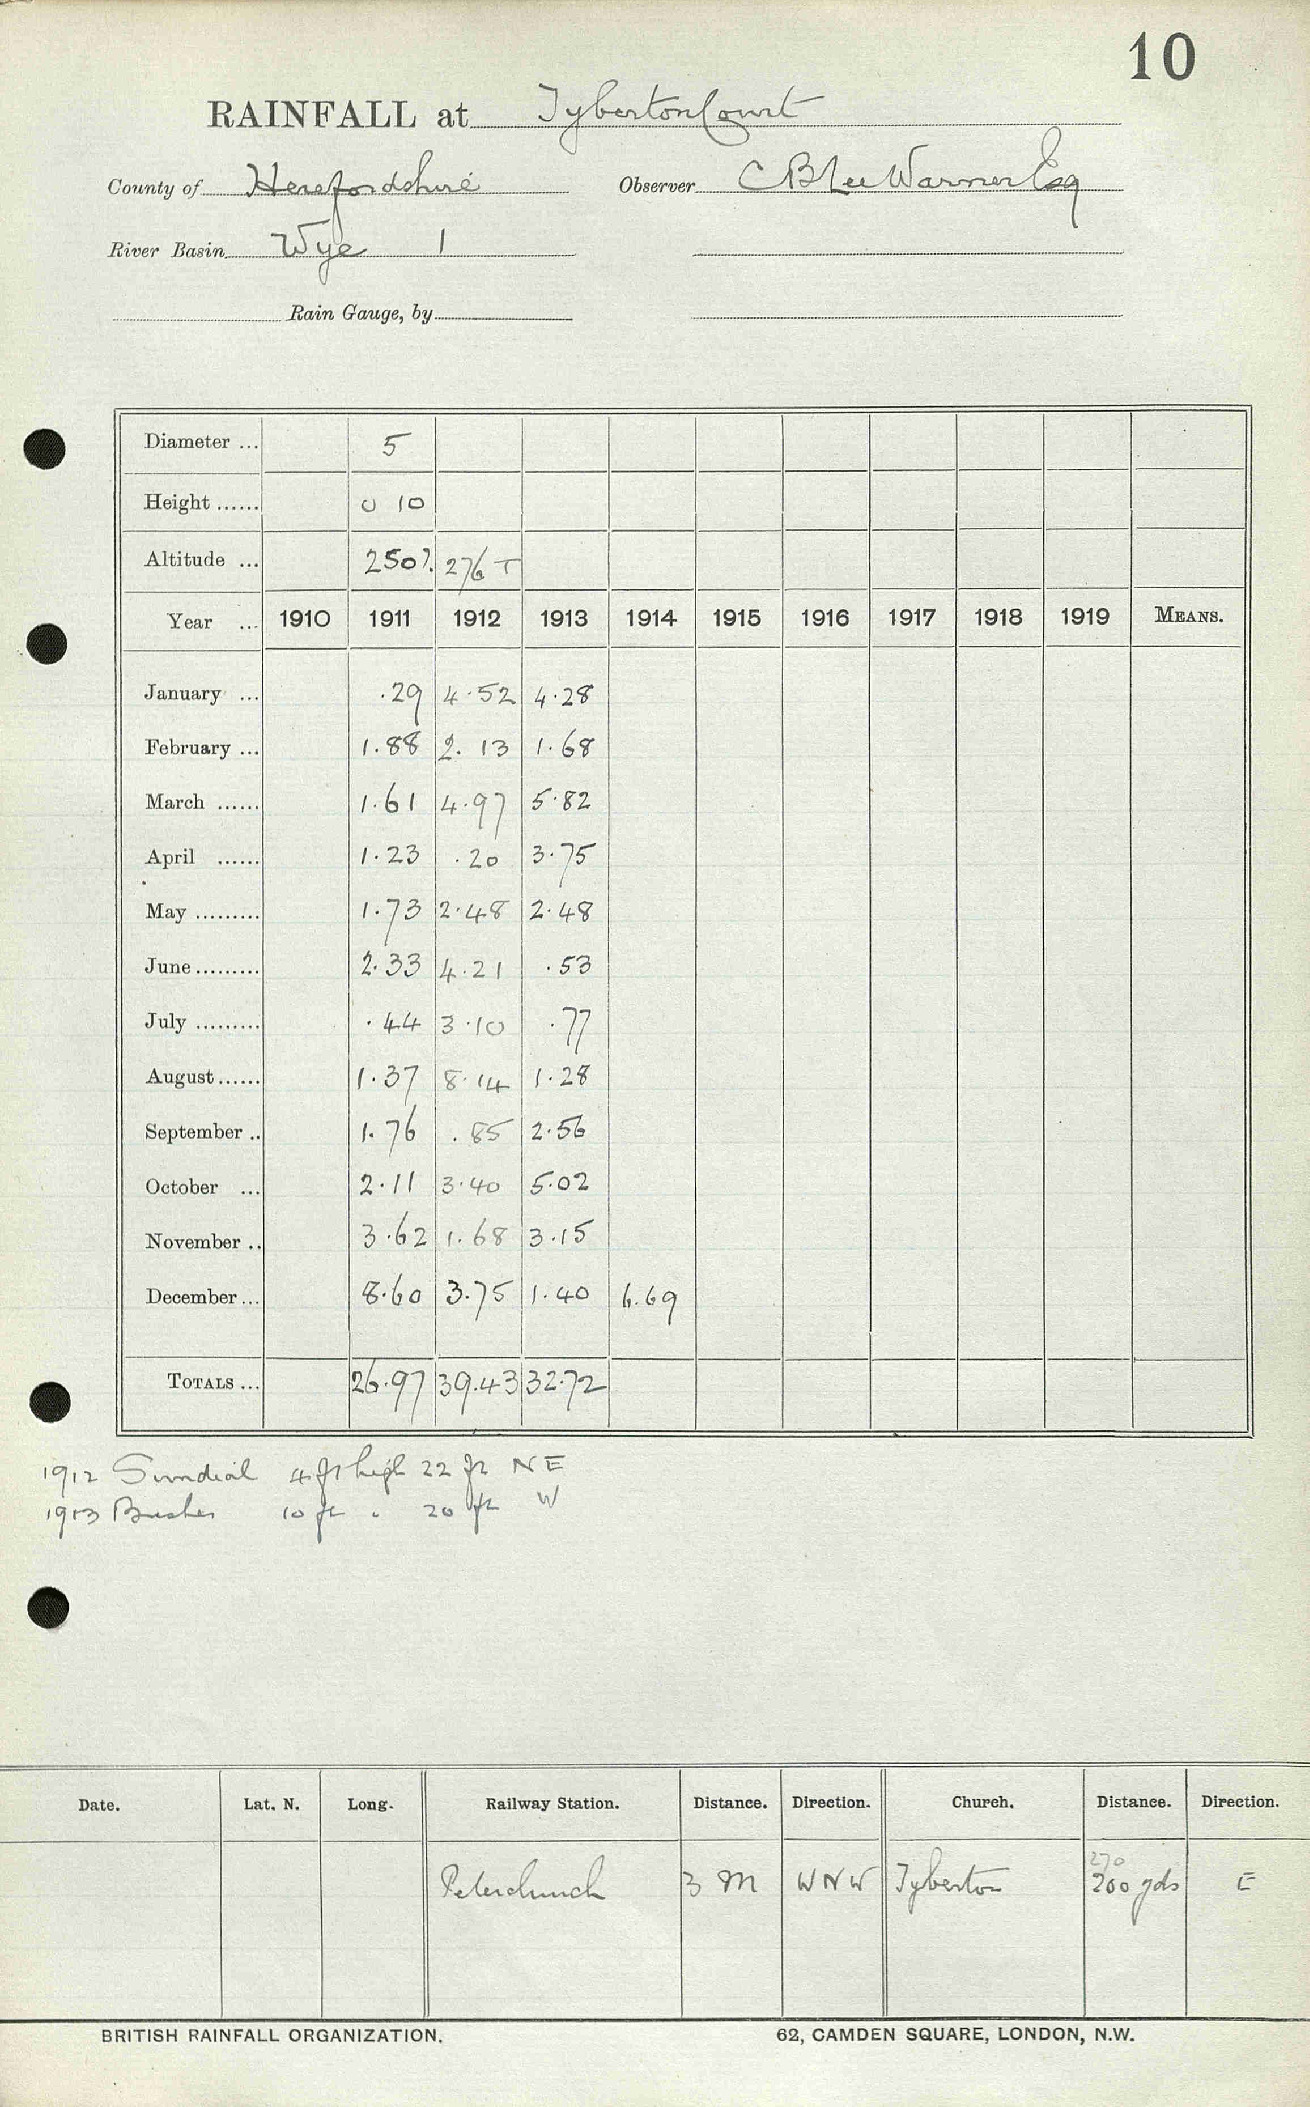 10
RAINFALL at Tyberton Court
County of Herefordshire Observer C B Lee Warner Esq
River Basin Wye 1
Rain Gauge, by
Diameter ... 5
Height ...... 0 10
Altitude ... 250? 276 T
Year ... 1910 1911 1912 1913 1914 1915 1916 1917 1918 1919 MEANS.
January ... .29 4.52 4.28
February ... 1.88 2.13 1.68
March ...... 1.61 4.97 5.82
April ...... 1.23 .20 3.75
May ......... 1.73 2.48 2.48
June ......... 2.33 4.21 .53
July ......... .44 3.10 .77
August ...... 1.37 8.14 1.28
September .. 1.76 .85 2.56
October ... 2.11 3.40 5.02
November .. 3.62 1.68 3.15
December ... 8.60 3.75 1.40 6.69
TOTALS ... 26.97 39.43 32.72
1912 Sundial 4 ft high 22 ft NE
1913 Bushes 10 ft " 20 ft W
Date. Lat. N. Long. Railway Station. Distance. Direction. Church. Distance. Direction.
270
Peterchurch 3 M WNW Tyberton 200 yds E
BRITISH RAINFALL ORGANIZATION. 62, CAMDEN SQUARE, LONDON, N.W.